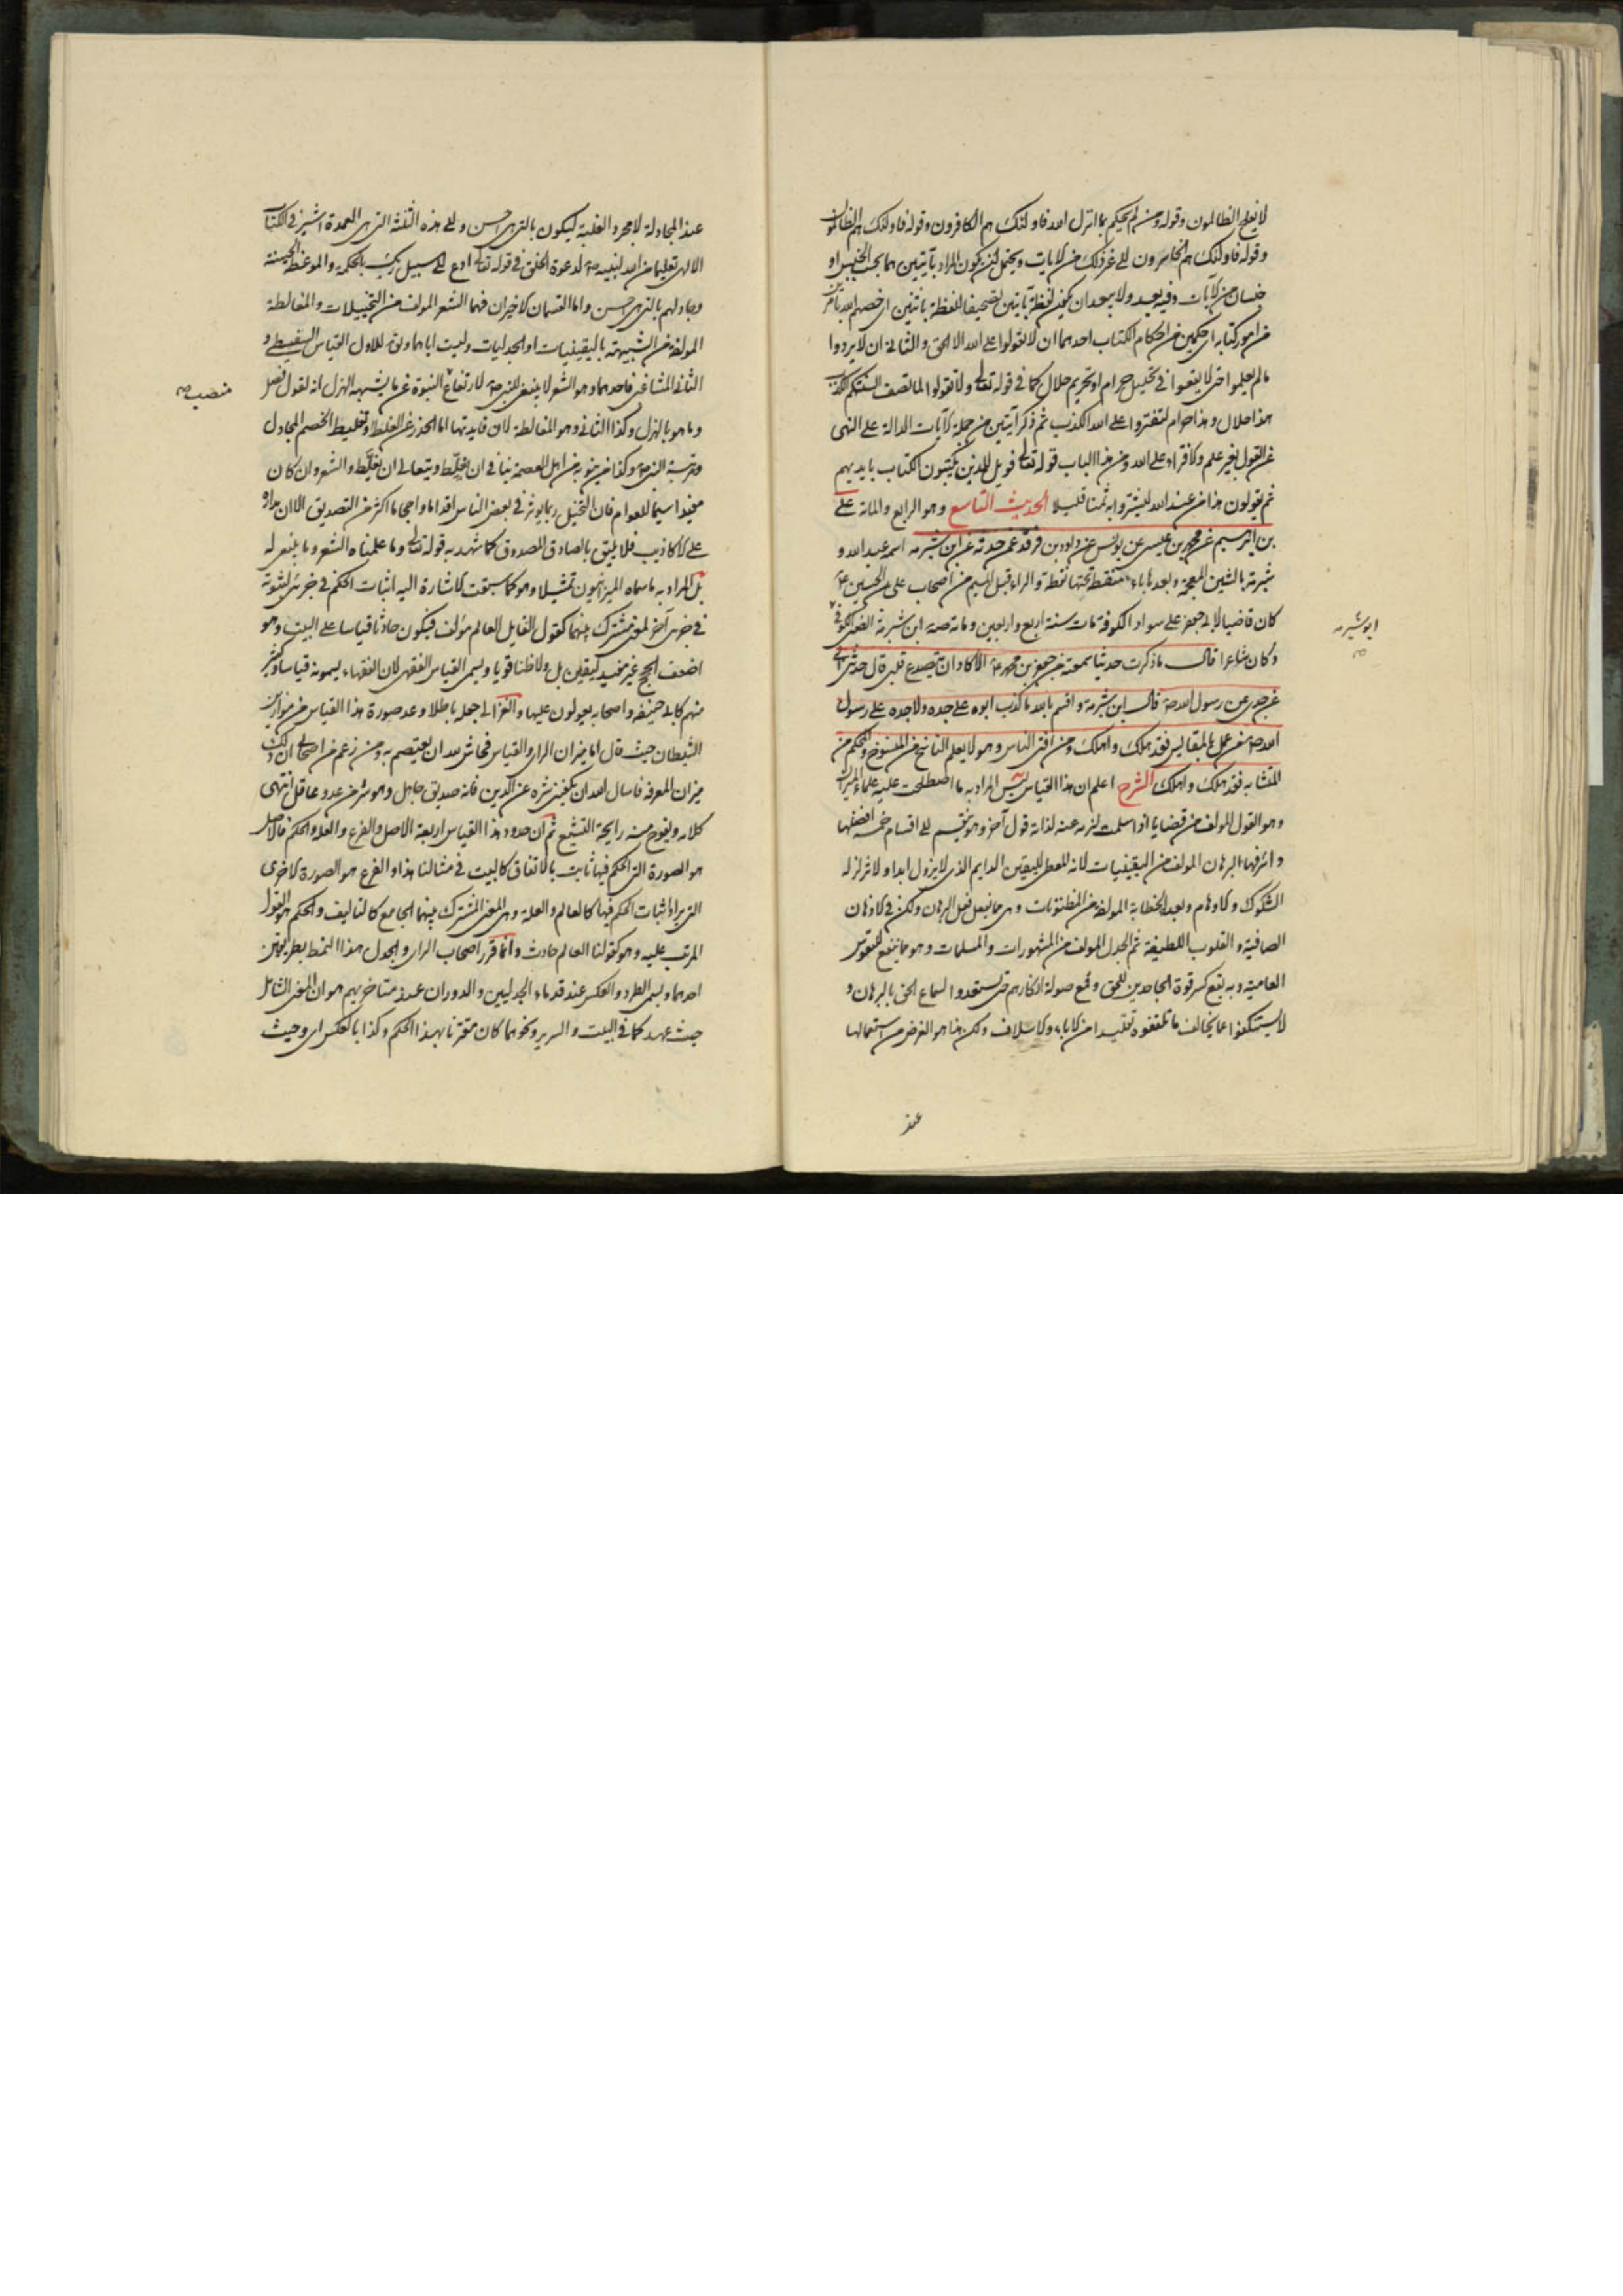 لا يفلح الظالمون وقوله ومن لم يحكم بما انزل الله فاولئك هم الكافرون وقوله فاولئك هم الظالمون
وقوله فاولئك هم الخاسرون الى غير ذلك من الايات ويحتمل ان يكون المراد بآيتين هما بحسب الجنس او
جنسان من الآيات وفيه بعد ولا يبعد ان يكون لفظة آيتين تصحيفا للفظة باثنين اى خصهم الله بامرين
من امور كتابه اى حكمين من احكام الكتاب احدهما ان لا يقولوا على الله الا الحق والثانى ان لا يردوا
ما لم يعلموا حتى لا يقعوا فى تحليل حرام او تحريم حلال كما فى قوله تعالى ولا تقولوا لما تصف السنتكم الكذب
هذا حلال وهذا حرام لتفتروا على الله الكذب ثم ذكر آيتين من جملة الآيات الدالة على النهى
عن القول بغير علم والافتراء على الله ومن هذا الباب قوله تعالى فويل للذين يكتبون الكتاب بايديهم
ثم يقولون هذا من عند الله ليشتروا به ثمنا قليلا الحديث التاسع وهو الرابع والمائة على
بن ابرهيم عن محمد بن عيسى عن يونس عن داود بن فرقد عمن حدثه عن ابن شبرمه اسمه عبد الله و
شبرمة بالشين المعجمة وبعدها باء منقطة تحتها نقطة والراء قبل الميم من اصحاب على بن الحسين ع
كان قاضيا لابى جعفر على سواد الكوفة مات سنة اربع واربعين ومائة صه ابن شبرمة الضبى الكوفى
وكان شاعرا قال ما ذكرت حديثا سمعته من جعفر بن محمد ع الا كاد ان يتصدع قلبى قال حدثنى ابى
عن جدى عن رسول الله ص قال ابن شبرمة واقسم بالله ما كذب ابوه على جده ولا جده على رسول
الله ص من عمل بالمقاييس فقد هلك واهلك ومن افتى الناس وهو لا يعلم الناسخ من المنسوخ والمحكم من
المتشابه فقد هلك واهلك الشرح اعلم ان هذا القياس ليس المراد به ما اصطلحت عليه علماء الميزان
وهو القول المؤلف من قضايا اذا سلمت لزم عنه لذاته قول آخر وهو ينقسم الى اقسام خمسة افضلها
واشرفها البرهان المولف من اليقينيات لانه المعطى لليقين الدايم الذى لا يزول ابدا ولا تزلزله
الشكوك والاوهام وبعده الخطابة المولفة من المظنونات وهى مما تفعل فعل البرهان ولكن فى الاذهان
الصافية والقلوب اللطيفة ثم الجدل المولف من المشهورات والمسلمات وهو مما ينفع للنفوس
العامية وبه يقع كسر قوة الجاحدين للحق وقمع صولة انكارهم حتى يستعدوا لسماع الحق بالبرهان و
لا يستنكفوا عما يخالف ما تلقفوه تقليدا من الاباء والاسلاف ولكن هذا هو الغرض من استعمالها
عند
ابو شبرمه
عند المجادلة لا مجرد الغلبة ليكون بالتى هى احسن والى هذه الثلثة التى هى العمدة اشير فى الكتاب
الالهى تعليما من الله لنبيه ص لدعوة الخلق فى قوله تعالى ادع الى سبيل ربك بالحكمة والموعظة الحسنة
وجادلهم بالتى هى احسن واما القسمان الاخيران فهما الشعر المولف من التخييلات والمغالطة
المولفة من الشبيهة باليقينيات او الجدليات وليست اياهما ويق للاول القياس السفسطى و
الثانى المشاغبى فاحدهما وهو الشعر لا ينبغى للنبى ص لارتفاع النبوة عن ما يشبهه الهزل انه لقول فصل
وما هو بالهزل وكذا الثانى وهو المغالطة لان فايدتها اما الحذر عن الغلط او تغليط الخصم المجادل
ومرتبة النبى ص وكذا من ينوبه من اهل العصمة ينافى ان يغلط ويتعالى ان يغلط والشعر وان كان
مفيدا سيما للعوام فان التخيل ربما يوثر فى بعض الناس اقداما واحجاما اكثر من التصديق الا ان مداره
على الاكاذيب فلا يليق بالصادق المصدوق كما شهد به قوله تعالى وما علمناه الشعر وما ينبغى له
بل المراد به ما سماه الميزانيون تمثيلا وهو كما سبقت الاشارة اليه اثبات الحكم فى جزئى لثبوته
فى جزئى آخر لمعنى مشترك بينهما كقول القايل العالم مؤلف فيكون حادثا قياسا على البيت وهو
اضعف الحجج غير مفيد لليقين بل ولا ظنا قويا ويسمى القياس الفقهى لان الفقهاء يسمونه قياسا وكثير
منهم كابى حنيفه واصحابه يعولون عليها والغزالى جعله باطلا وعد صورة هذا القياس من موازين
الشيطان حيث قال اما ميزان الراى والقياس فحاش لله ان يعتصم به ومن زعم من اصحابى ان ذلك
ميزان المعرفة فاسال الله ان يكفينى شره عن الدين فانه صديق جاهل وهو شر من عدو عاقل انتهى
كلامه ويفوح منه رايحة التشيع ثم ان حدود هذا القياس اربعة الاصل والفرع والعلة والحكم فالاصل
هو الصورة التى الحكم فيها ثابت بالاتفاق كالبيت فى مثالنا هذا والفرع هو الصورة الاخرى
التى يراد اثبات الحكم فيها كالعالم والعلة وهى المعنى المشترك بينهما الجامع كالتاليف والحكم هو القول
المرتب عليه وهو كقولنا العالم حادث وانما قرر اصحاب الراى والجدل هذا النمط بطريقتين
احدهما ويسمى الطرد والعكس عند قدماء الجدليين والدوران عند متاخريهم هو ان المعنى الشامل
حيث عهد كما فى البيت والسرير ونحوهما كان مقترنا بهذا الحكم وكذا بالعكس اى وحيث
منصب